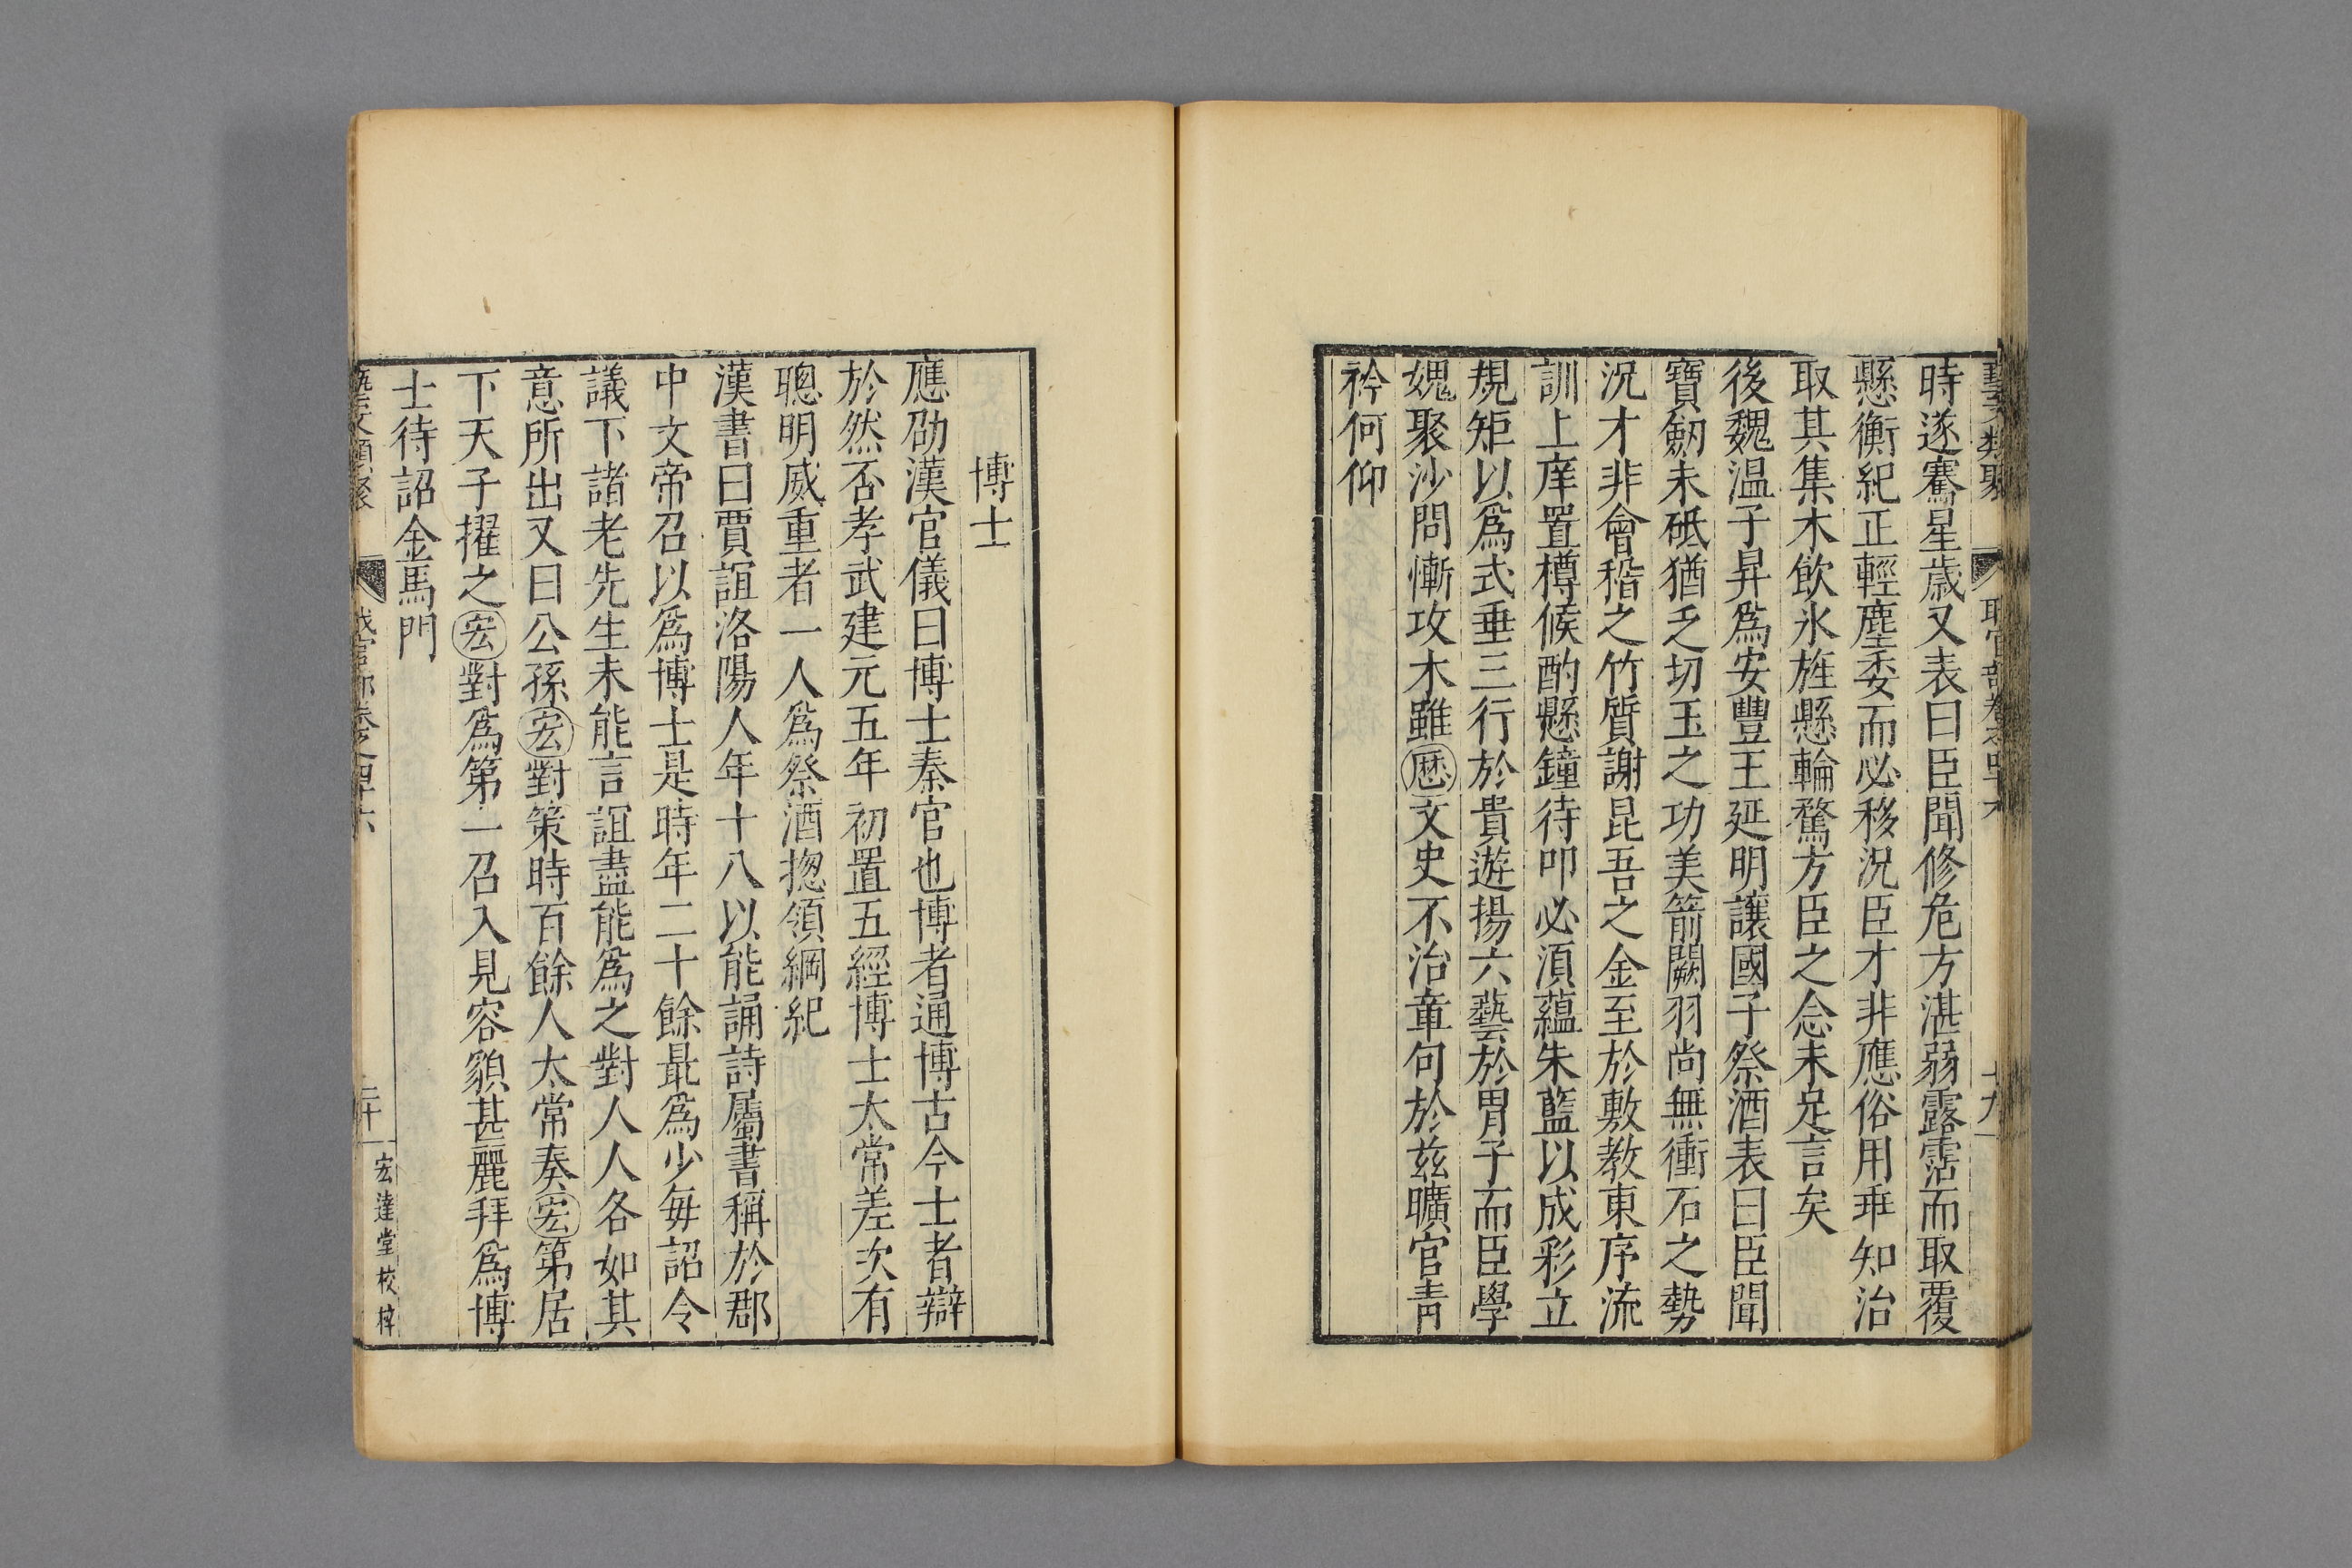 藝文類聚 職官部卷之四十六 十九
時遂騫星歲又表曰臣聞修危方湛弱露霑而取覆
懸衡紀正輕塵委而必移況臣才非應俗用乖知治
取其集木飲氷旌懸輪騖方臣之念未足言矣
後魏温子昇爲安豐王延明讓國子祭酒表曰臣聞
寶劒未砥猶乏切玉之功美箭闕羽尚無衝石之勢
況才非會稽之竹質謝昆吾之金至於敷教東序流
訓上庠置樽候酌懸鐘待叩必湏蘊朱藍以成彩立
規矩以爲式垂三行於貴遊揚六藝於胄子而臣學
媿聚沙問慚攻木雖㦄文史不治章句於兹曠官靑
衿何仰
博士
應劭漢官儀曰博士秦官也博者通博古今士者辯
於然否孝武建元五年初置五經博士太常差次有
聰明威重者一人爲祭酒揔領綱紀
漢書曰賈誼洛陽人年十八以能誦詩屬書稱於郡
中文帝召以爲博士是時年二十餘最爲少每詔令
議下諸老先生未能言誼盡能爲之對人人各如其
意所出又曰公孫宏對策時百餘人太常奏宏第居
下天子擢之宏對爲第一召入見容貌甚麗拜爲博
士待詔金馬門
藝文類聚 職官部卷之四十六 二十 宏達堂校梓